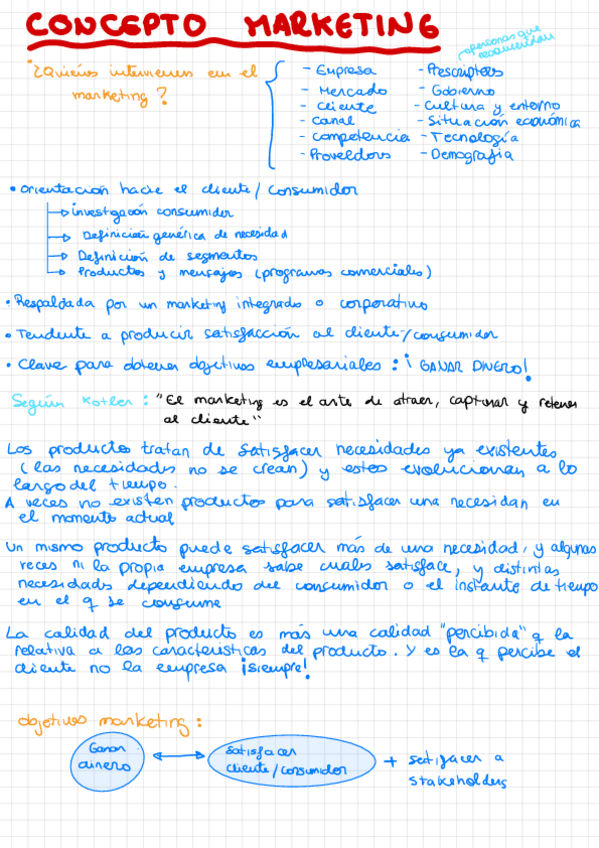 CONCEPTO MARKETING
¿Quienes intervienen em el
marketing?
- Empresa
- Mercado
- Cliente
- Canal
- Competencia
- Proveedors
personas que
recomiendan
- Prescriptores
- Gobierno
- Cultura y entorno
- Situación económica
- Tecnología
- Demografía
• Orientación hacie el cliente/consumidor
→ investigación consumidor
→ Definición genérica de necesidad
→ Definición de segmentos
→ Productos y mensajes (programas comerciales)
• Respaldada por un marketing integrado o corporativo
• Tendente a producir satisfacción al cliente/consumidor
• Clave para obtener objetivos empresariales: ¡GANAR DINERO!
Según Kotler: "El marketing es el arte de atraer, capturar y retener
al cliente"
Los productos tratan de satisfacer necesidades ya existentes
(las necesidades no se crean) y estos evolucionan a lo
largo del tiempo.
A veces no existen productos para satisfacer una necesidan en
el momento actual
Un mismo producto puede satisfacer más de una necesidad, y algunas
veces ni la propia empresa sabe cuales satisface, y distintas
necesidades dependiendo del consumidor o el instante de tiempo
en el q se consume
La calidad del producto es más una calidad "percibida" q la
relativa a las características del producto. Y es la q percibe el
cliente no la empresa ¡siempre!
objetivos marketing:
Ganar
dinero
satisfacer
cliente/consumidor
+ satisfacer a
stakeholders